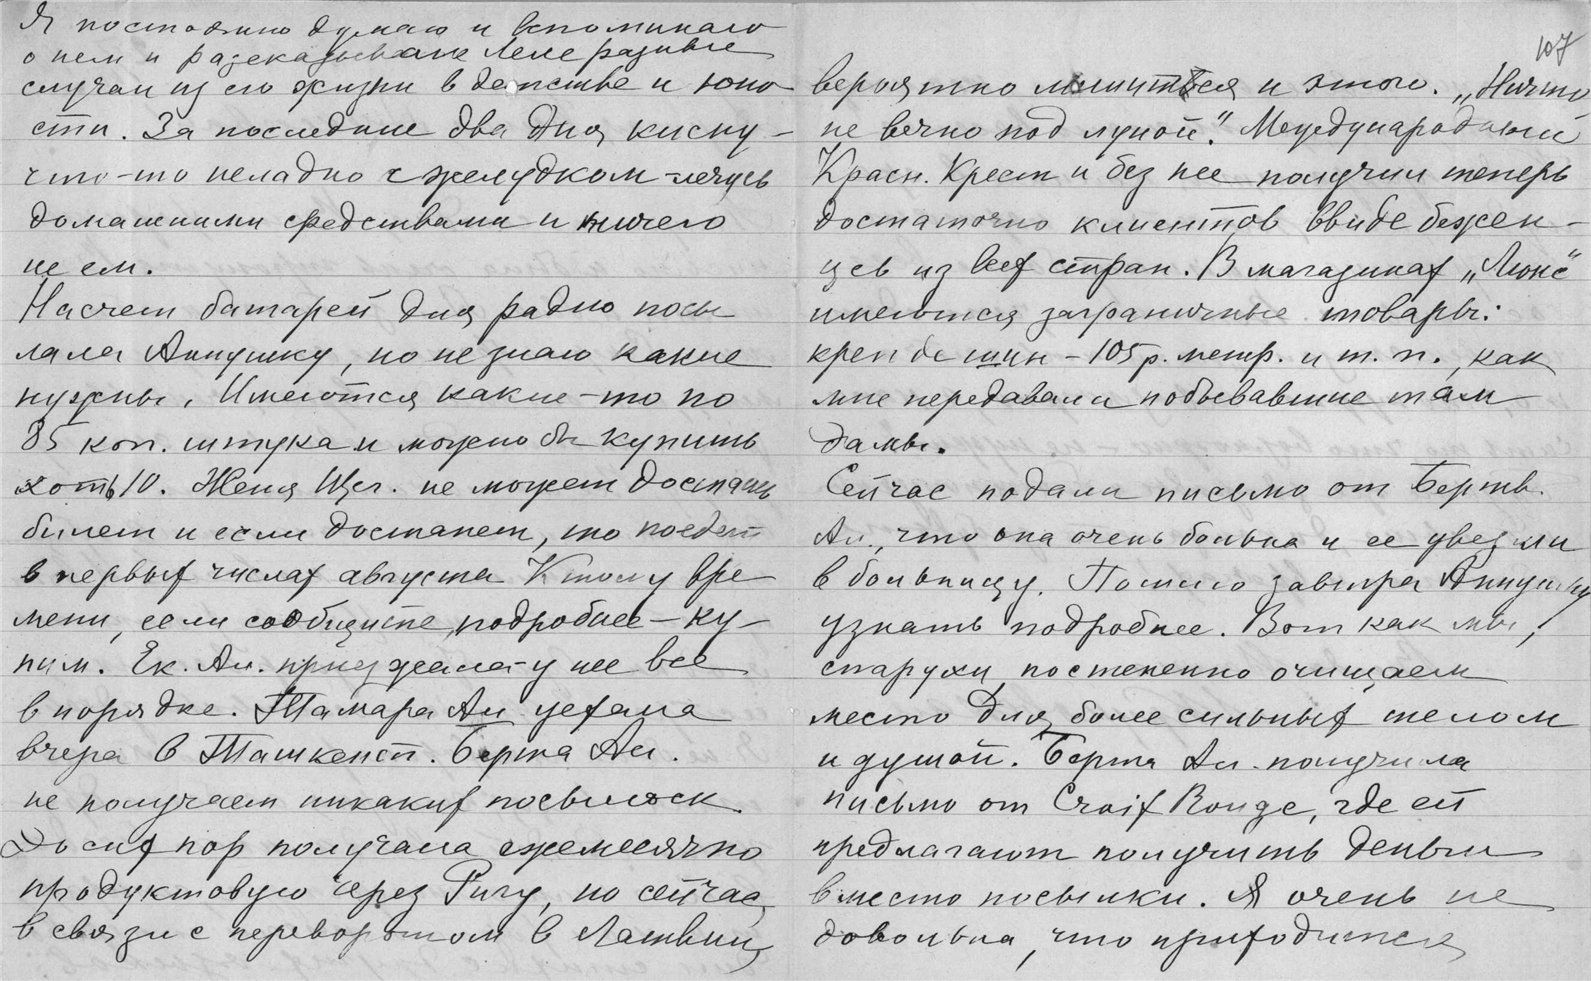 Я постоянно думаю и вспоминаю
о нем и рассказываю Леле разные
случаи из его жизни в детстве и юно
сти. За последние два дня кисну -
что-то неладно с желудком - лечусь
домашними средствами и ничего
не ем.
Насчет батарей для радио посы
лала Аннушку, но не знаю какие
нужны. Имеются какие-то по
85 коп. штука и можно бы купить
хоть 10. Женя Щег. не может достать
билет и если достанет, то поедет
в первых числах августа К тому вре
мени, если сообщите подробнее - ку-
пим. Ек. Ал. приезжала - у нее все
в порядке. Тамара Ал уехала
вчера в Ташкент. Берта Ал.
не получает никаких посылок.
До сих пор получала ежемесячно
продуктовую через Ригу, но сейчас,
в связи с переворотом в Латвии,
107
вероятно лишится и этого. „Ничто
не вечно под луной“. Международный
Красн. Крест и без нее получил теперь
достаточно клиентов ввиде бежен -
цев из всех стран. В магазинах „Люкс“
имеются заграничные товары:
креп де шин - 105 р. метр. и т. п., как
мне передавали побывавшие там
дамы.
Сейчас подали письмо от Берты.
Ал., что она очень больна и ее увезли
в больницу. Пошлю завтра Аннушку
узнать подробнее. Вот как мы,
старухи, постепенно очищаем
место для более сильных телом
и душой. Берта Ал. получила
письмо от Croix Rouge, где ей
предлагают получить деньги
вместо посылки. Я очень не
довольна, что приходится